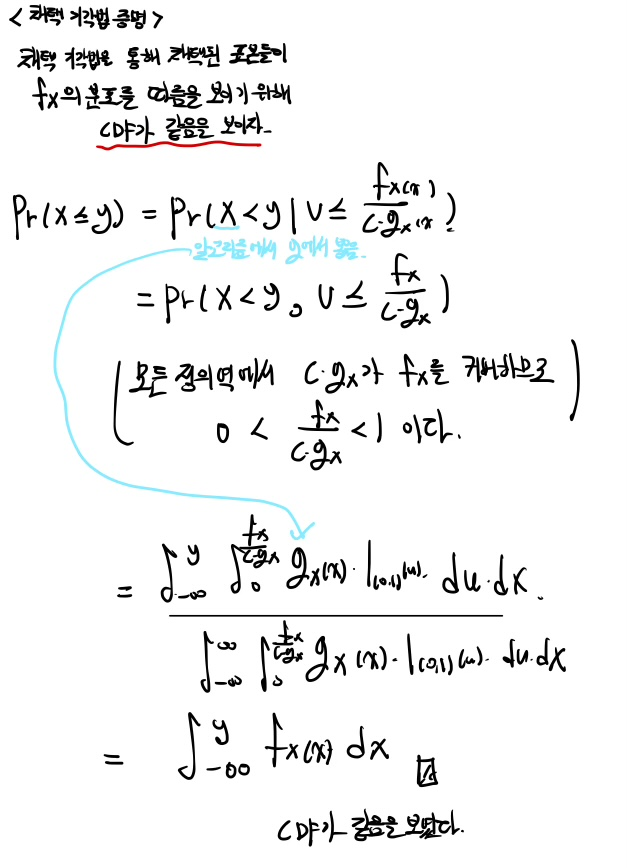 < 채택 기각법 증명 >
채택 기각법을 통해 채택된 표본들이
fx의 분포를 따름을 보이기 위해
CDF가 같음을 보이자.
Pr(X≤y) = Pr(X<y | U≤ fx(x) / c·gx(x))
알고리즘에서 g에서 뽑음.
= Pr(X<y, U≤ fx / c·gx)
( 모든 정의역에서 c·gx가 fx를 커버하므로
0 < fx / c·gx < 1 이다. )
= ∫_{-∞}^{y} ∫_{0}^{fx / c·gx} gx(x)·I(0,1)(u)· du·dx.
∫_{-∞}^{∞} ∫_{0}^{fx / c·gx} gx(x)·I(0,1)(u)· du·dx
= ∫_{-∞}^{y} fx(x) dx
CDF가 같음을 보였다.